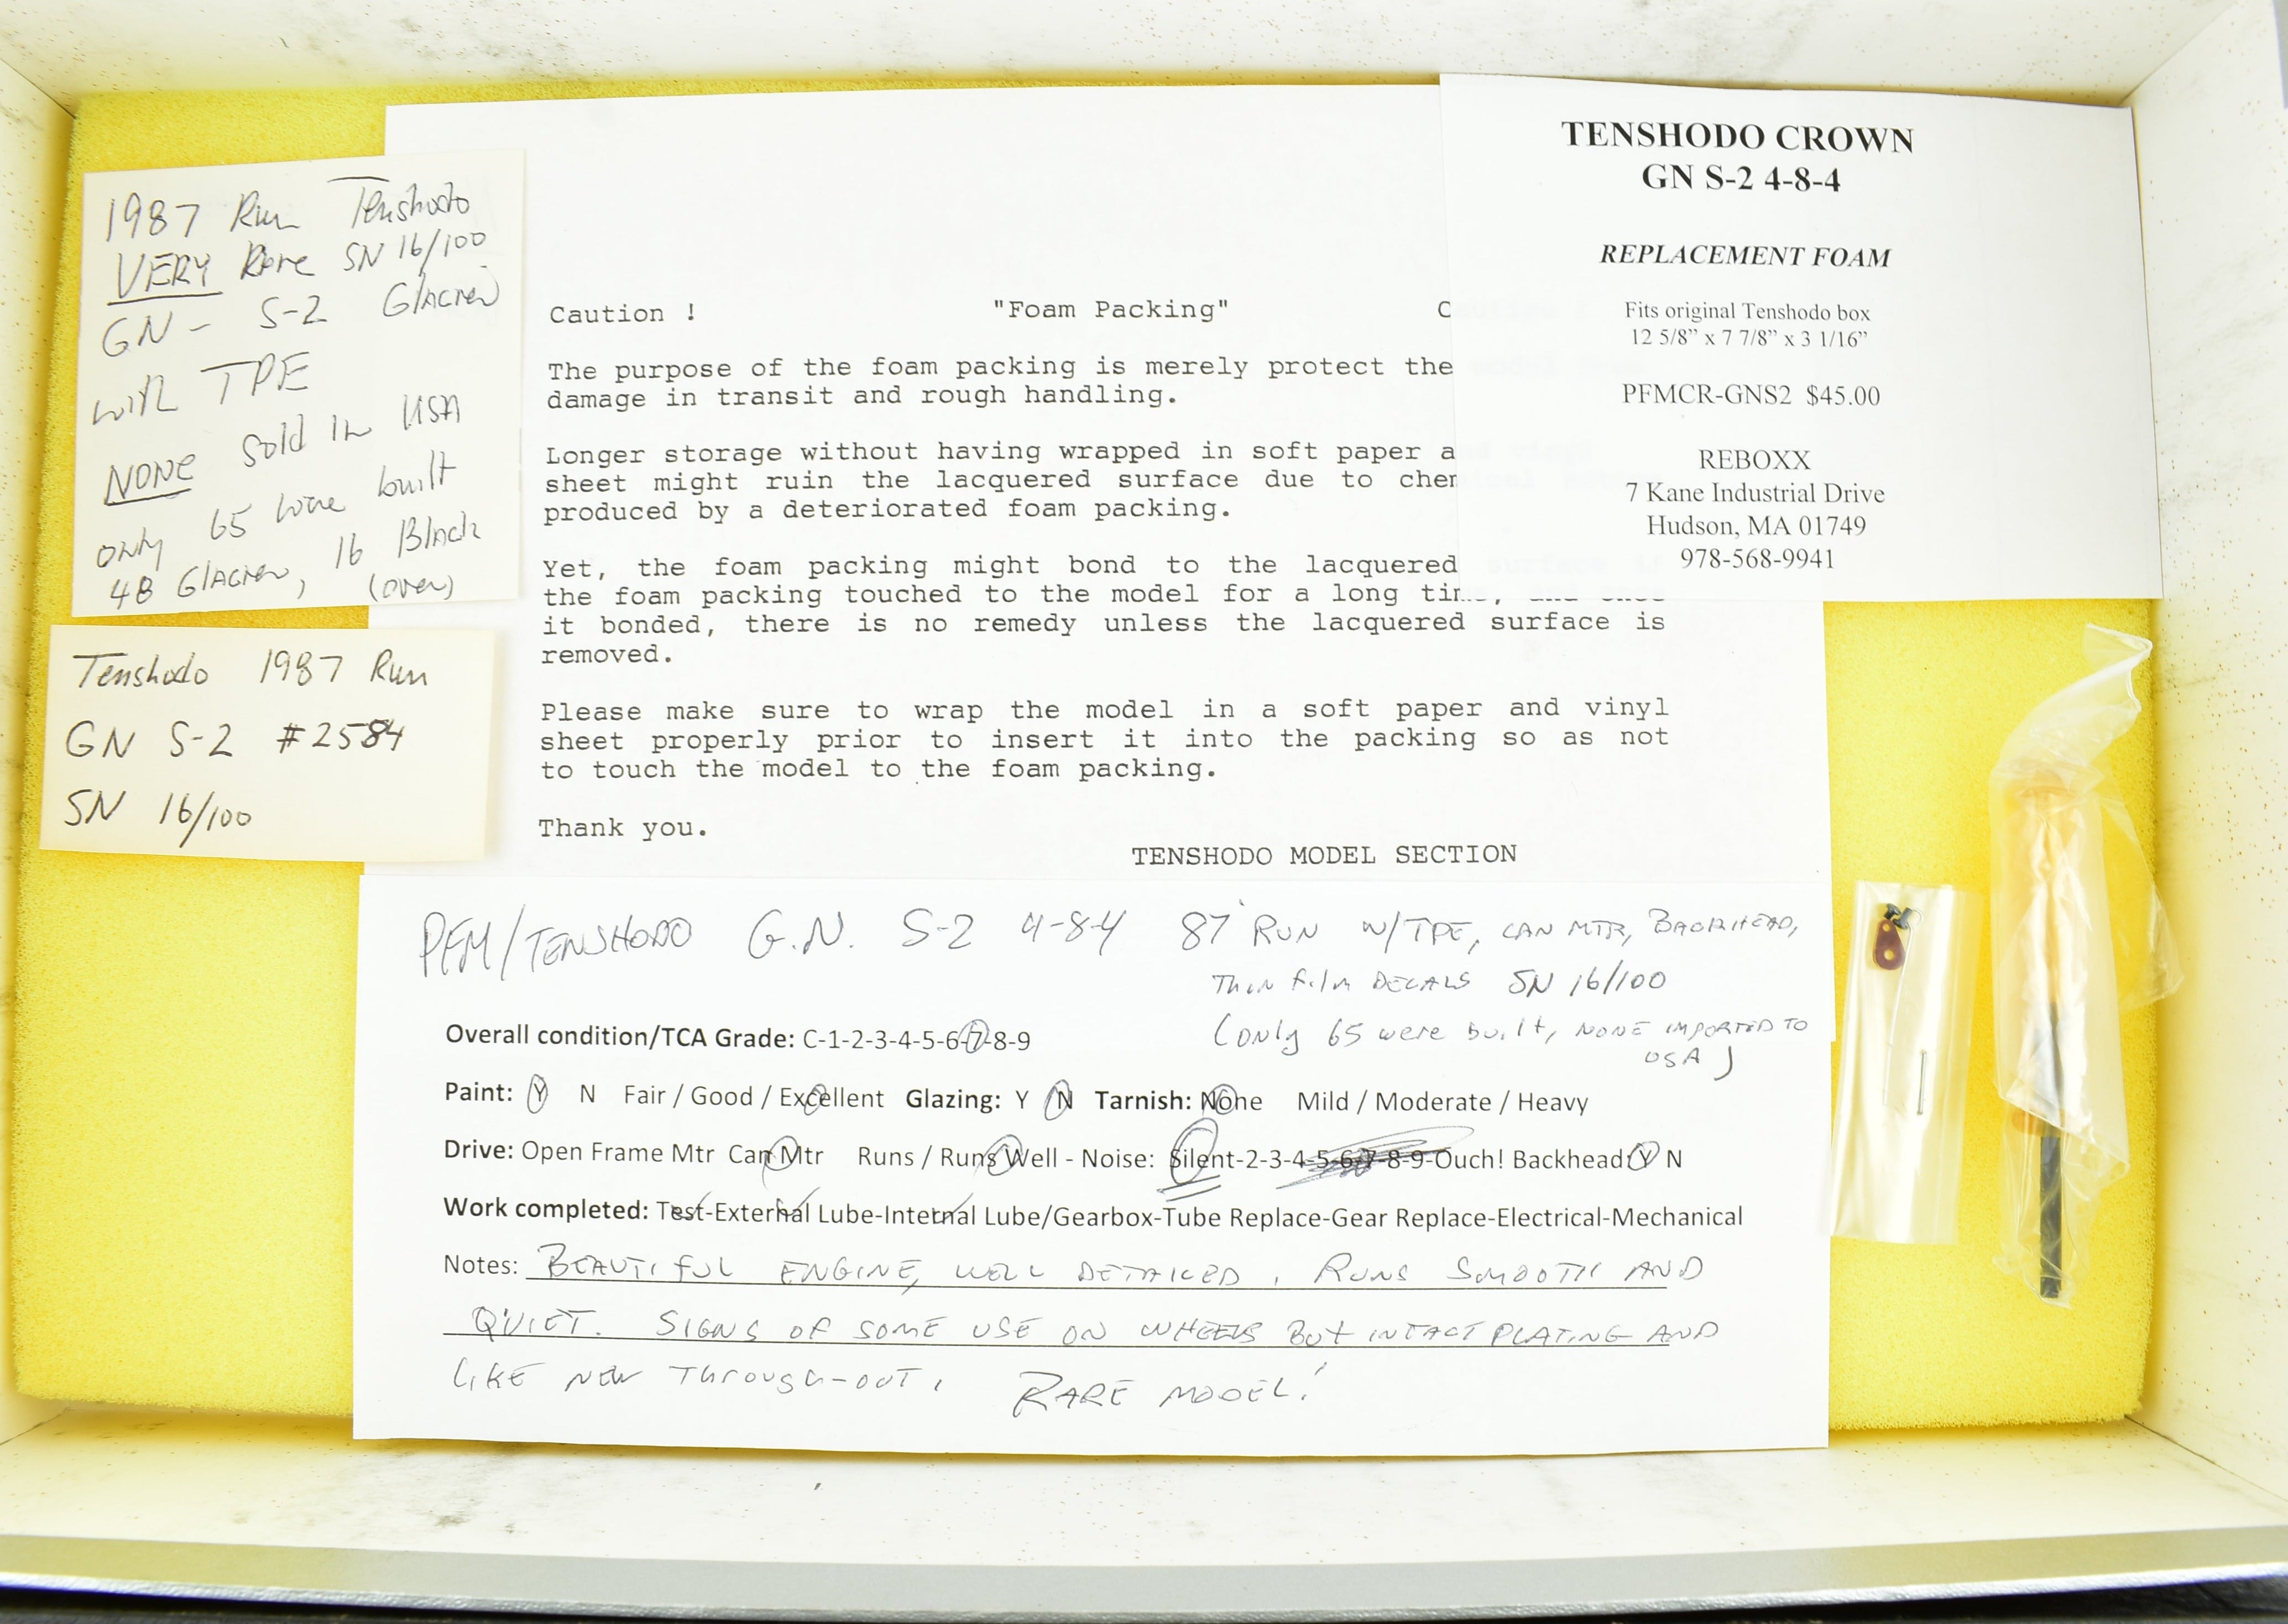 1987 Run Tenshodo
VERY Rare SN 16/100
GN - S-2 Glacier
with TPE
NONE Sold in USA
only 65 were built
48 Glacier, 16 Black
(over)
Tenshodo 1987 Run
GN S-2 #2584
SN 16/100
Caution ! "Foam Packing" C
The purpose of the foam packing is merely protect the
damage in transit and rough handling.
Longer storage without having wrapped in soft paper a
sheet might ruin the lacquered surface due to chem
produced by a deteriorated foam packing.
Yet, the foam packing might bond to the lacquered
the foam packing touched to the model for a long time, and once
it bonded, there is no remedy unless the lacquered surface is
removed.
Please make sure to wrap the model in a soft paper and vinyl
sheet properly prior to insert it into the packing so as not
to touch the model to the foam packing.
Thank you.
TENSHODO MODEL SECTION
TENSHODO CROWN
GN S-2 4-8-4
REPLACEMENT FOAM
Fits original Tenshodo box
12 5/8” x 7 7/8” x 3 1/16”
PFMCR-GNS2 $45.00
REBOXX
7 Kane Industrial Drive
Hudson, MA 01749
978-568-9941
PFM/TENSHODO G.N. S-2 4-8-4 87' RUN W/TPE, CAN MTR, BACKHEAD,
THIN FILM DECALS SN 16/100
(only 65 were built, NONE IMPORTED TO
USA)
Overall condition/TCA Grade: C-1-2-3-4-5-6-7-8-9
Paint: Y N Fair / Good / Excellent Glazing: Y N Tarnish: None Mild / Moderate / Heavy
Drive: Open Frame Mtr Can Mtr Runs / Runs Well - Noise: Silent-2-3-4-5-6-7-8-9-Ouch! Backhead: Y N
Work completed: Test-External Lube-Internal Lube/Gearbox-Tube Replace-Gear Replace-Electrical-Mechanical
Notes: BEAUTIFUL ENGINE, WELL DETAILED. RUNS SMOOTH AND
QUIET. SIGNS OF SOME USE ON WHEELS BUT INTACT PLATING AND
LIKE NEW THROUGH-OUT. RARE MODEL!